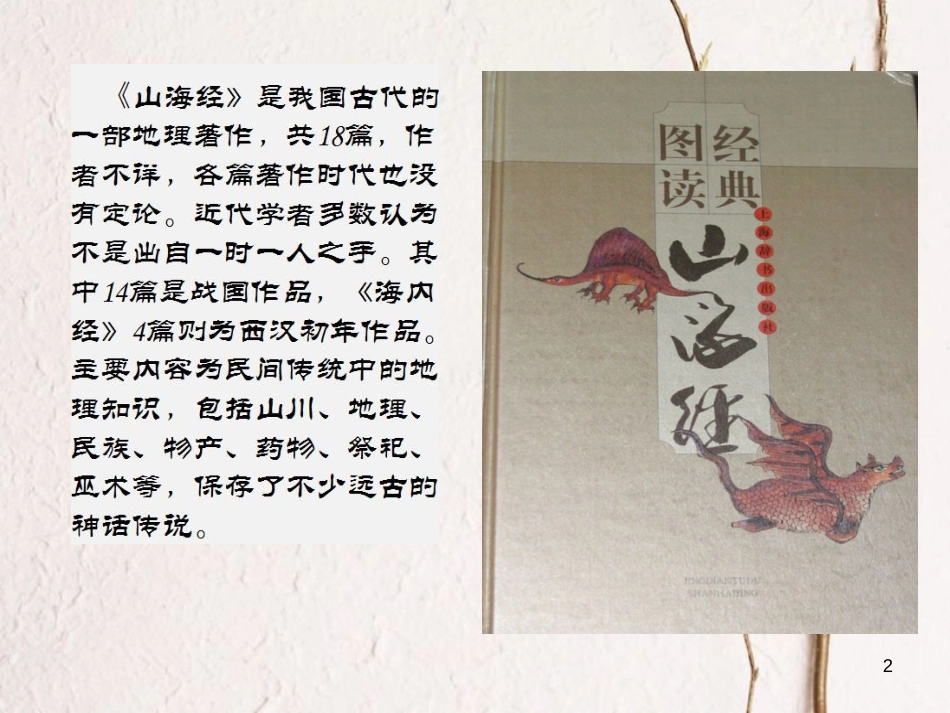 《山海经》是我国古代的
一部地理著作，共18篇，作
者不详，各篇著作时代也没
有定论。近代学者多数认为
不是出自一时一人之手。其
中14篇是战国作品，《海内
经》4篇则为西汉初年作品。
主要内容为民间传统中的地
理知识，包括山川、地理、
民族、物产、药物、祭祀、
巫术等，保存了不少远古的
神话传说。
经典
图读
山海经
上海辞书出版社
JINGDIANTUDU
SHANHAIJING
2